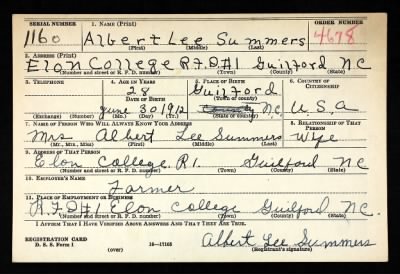 SERIAL NUMBER 1. NAME (Print) ORDER NUMBER
1160 Albert Lee Summers 4678
(First) (Middle) (Last)
2. ADDRESS (Print)
Elon College R.F.D#1 Guilford NC
(Number and street or R. F. D. number) (Town) (County) (State)
3. TELEPHONE 4. AGE IN YEARS 5. PLACE OF BIRTH 6. COUNTRY OF CITIZENSHIP
28 Guilford
DATE OF BIRTH (Town or county)
June 30 1912 N.C. U.S.A
(Exchange) (Number) (Mo.) (Day) (Yr.) (State or country)
7. NAME OF PERSON WHO WILL ALWAYS KNOW YOUR ADDRESS 8. RELATIONSHIP OF THAT PERSON
Mrs Albert Lee Summers Wife
(Mr., Mrs., Miss) (First) (Middle) (Last)
9. ADDRESS OF THAT PERSON
Elon College. R1. Guilford NC
(Number and street or R. F. D. number) (Town) (County) (State)
10. EMPLOYER'S NAME
Farmer
11. PLACE OF EMPLOYMENT OR BUSINESS
R.F.D#1 Elon College Guilford NC.
(Number and street or R. F. D. number) (Town) (County) (State)
I AFFIRM THAT I HAVE VERIFIED ABOVE ANSWERS AND THAT THEY ARE TRUE.
REGISTRATION CARD
D. S. S. Form 1 (over) 16—17105 Albert Lee Summers
(Registrant's signature)